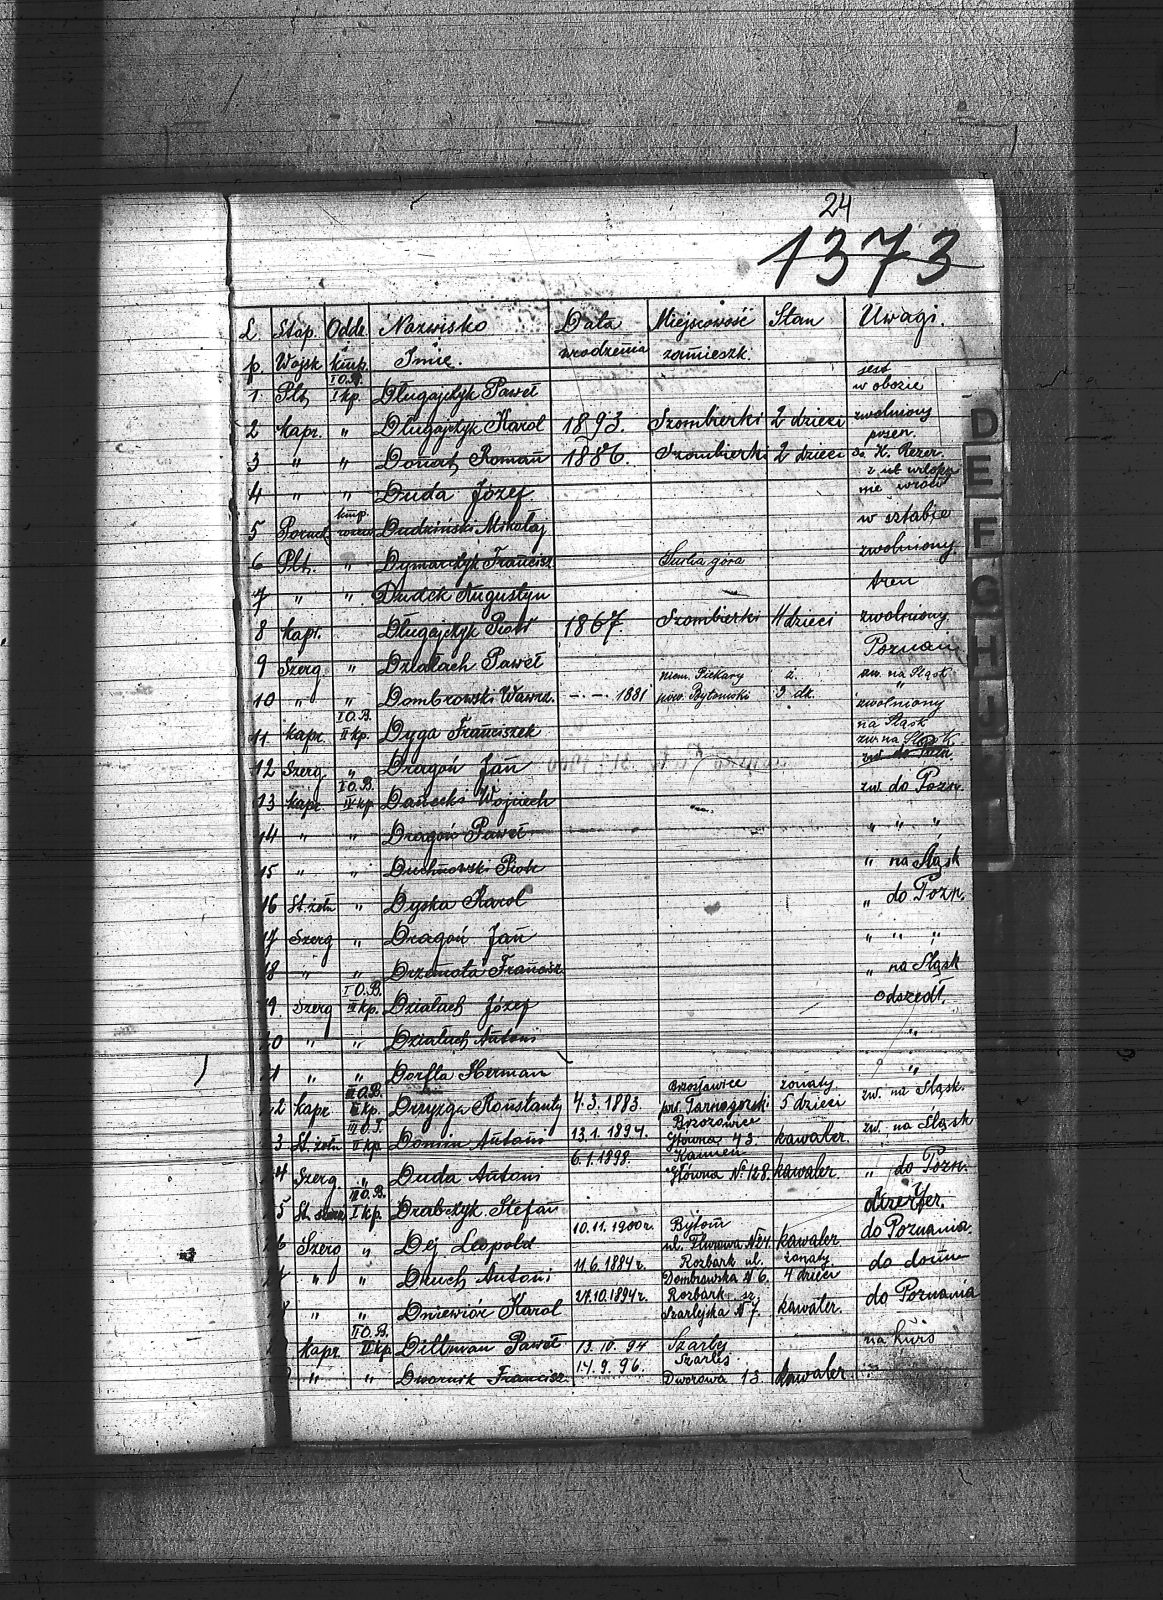 24
1373
L. Stop. Oddz. Nazwisko Data Miejscowość Stan Uwagi.
p. Wojsk i kmp. Imię. urodzenia zamieszk.
1 Plt. I O.B. I kp. Długajczyk Paweł jest w obozie
2 Kapr. " Długajczyk Karol 1893. Szombierki 2 dzieci zwolniony
3 " " Donat Roman 1886. Szombierki 2 dzieci K. Rezer.
4 " " Duda Józef z url. nie wrócił
5 kmp. Dudziński Mikołaj w sztabie
6 Plt. " Dymarczyk Francisz Sucha góra zwolniony.
7 " " Dudek Augustyn tren
8 Kapr. Długajczyk Piotr 1867. Szombierki 4 dzieci zwolniony.
9 Szerg. " Działach Paweł Poznań
10 " " Dombrowski Wawrz. - - 1881 niem. Piekary pow. Bytomski ż. 3 dz. zw. na Śląsk
11 Kapr. I O.B. II kp. Dyga Franciszek zwolniony na Śląsk
12 Szerg " Dragoń Jan zw. na Śląsk
13 Kapr. I O.B. IV kp. Danecki Wojciech zw. do Pozn.
14 " " Dragoń Paweł " " "
15 " " Duchnowski Piotr " na Śląsk
16 St. żołn " Dyska Karol " do Pozn.
17 Szerg " Dragoń Jan " " "
18 " " Drzemota Francisz. " na Śląsk
9 Szerg I O.B. III kp. Działach Józef odszedł.
20 " " Działach Antoni "
21 " " Dorfla Herman "
2 Kapr III O.B. kp. Dryzga Konstanty 4.3.1883. Brzosławice pow. Tarnogórski. żonaty. 5 dzieci zw. na Śląsk.
3 St. żołn II kp. Domin Antoni 13.1.1894. Brzozowice Główna 43. kawaler. zw. na Śląsk
4 Szerg. " Duda Antoni 6.1.1898. Kamień Główna № 128. kawaler. " do Pozn.
5 St. I kp. Drabczyk Stefan dezerter.
6 Szerg " Dej Leopold 10.11.1900 r. Bytom ul. № 24. kawaler do Poznania.
" " Duch Antoni 11.6.1884 r. Rozbark ul. Dombrowska № 6. żonaty. 4 dzieci do domu
" " Dniewiór Karol 27.10.1894 r. Rozbark sz. Szarlejska № 7. kawaler. do Poznania
Kapr II O.B. kp Dittman Paweł 13.10.94 Szarlej na kurs
" " Dwornik Francisz. 14.9.96. Szarlej. Dworowa 13 kawaler. "
D
E
F
G
H